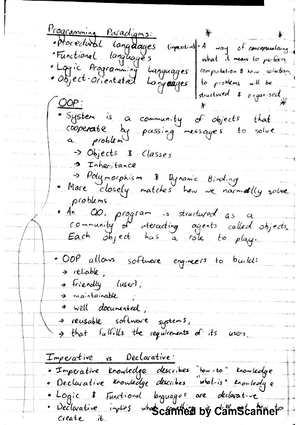 Programming Paradigms:
• Procedural Languages (imperative)
• Functional languages
• Logic Programming Languages
• Object-Orientated Languages
* *
• A way of conceptualising
what it means to perform
computation & how solutions
to problems will be
structured & organised.
* *
OOP:
• System is a community of objects that
cooperate by passing messages to solve
a problem
→ Objects & Classes
→ Inheritance
→ Polymorphism & Dynamic Binding
• More closely matches how we normally solve
problems.
• An O.O. program is structured as a
community of interacting agents called objects.
Each object has a role to play.
• OOP allows software engineers to build:
→ reliable,
→ friendly (user),
→ maintainable,
→ well documented,
→ reusable software systems,
→ that fulfills the requirements of its users.
Imperative vs Declarative:
• Imperative knowledge describes "how-to" knowledge
• Declarative knowledge describes "what-is" knowledge
• Logic & Functional languages are declarative
• Declarative implies what something is, to
create it.
Scanned by CamScanner